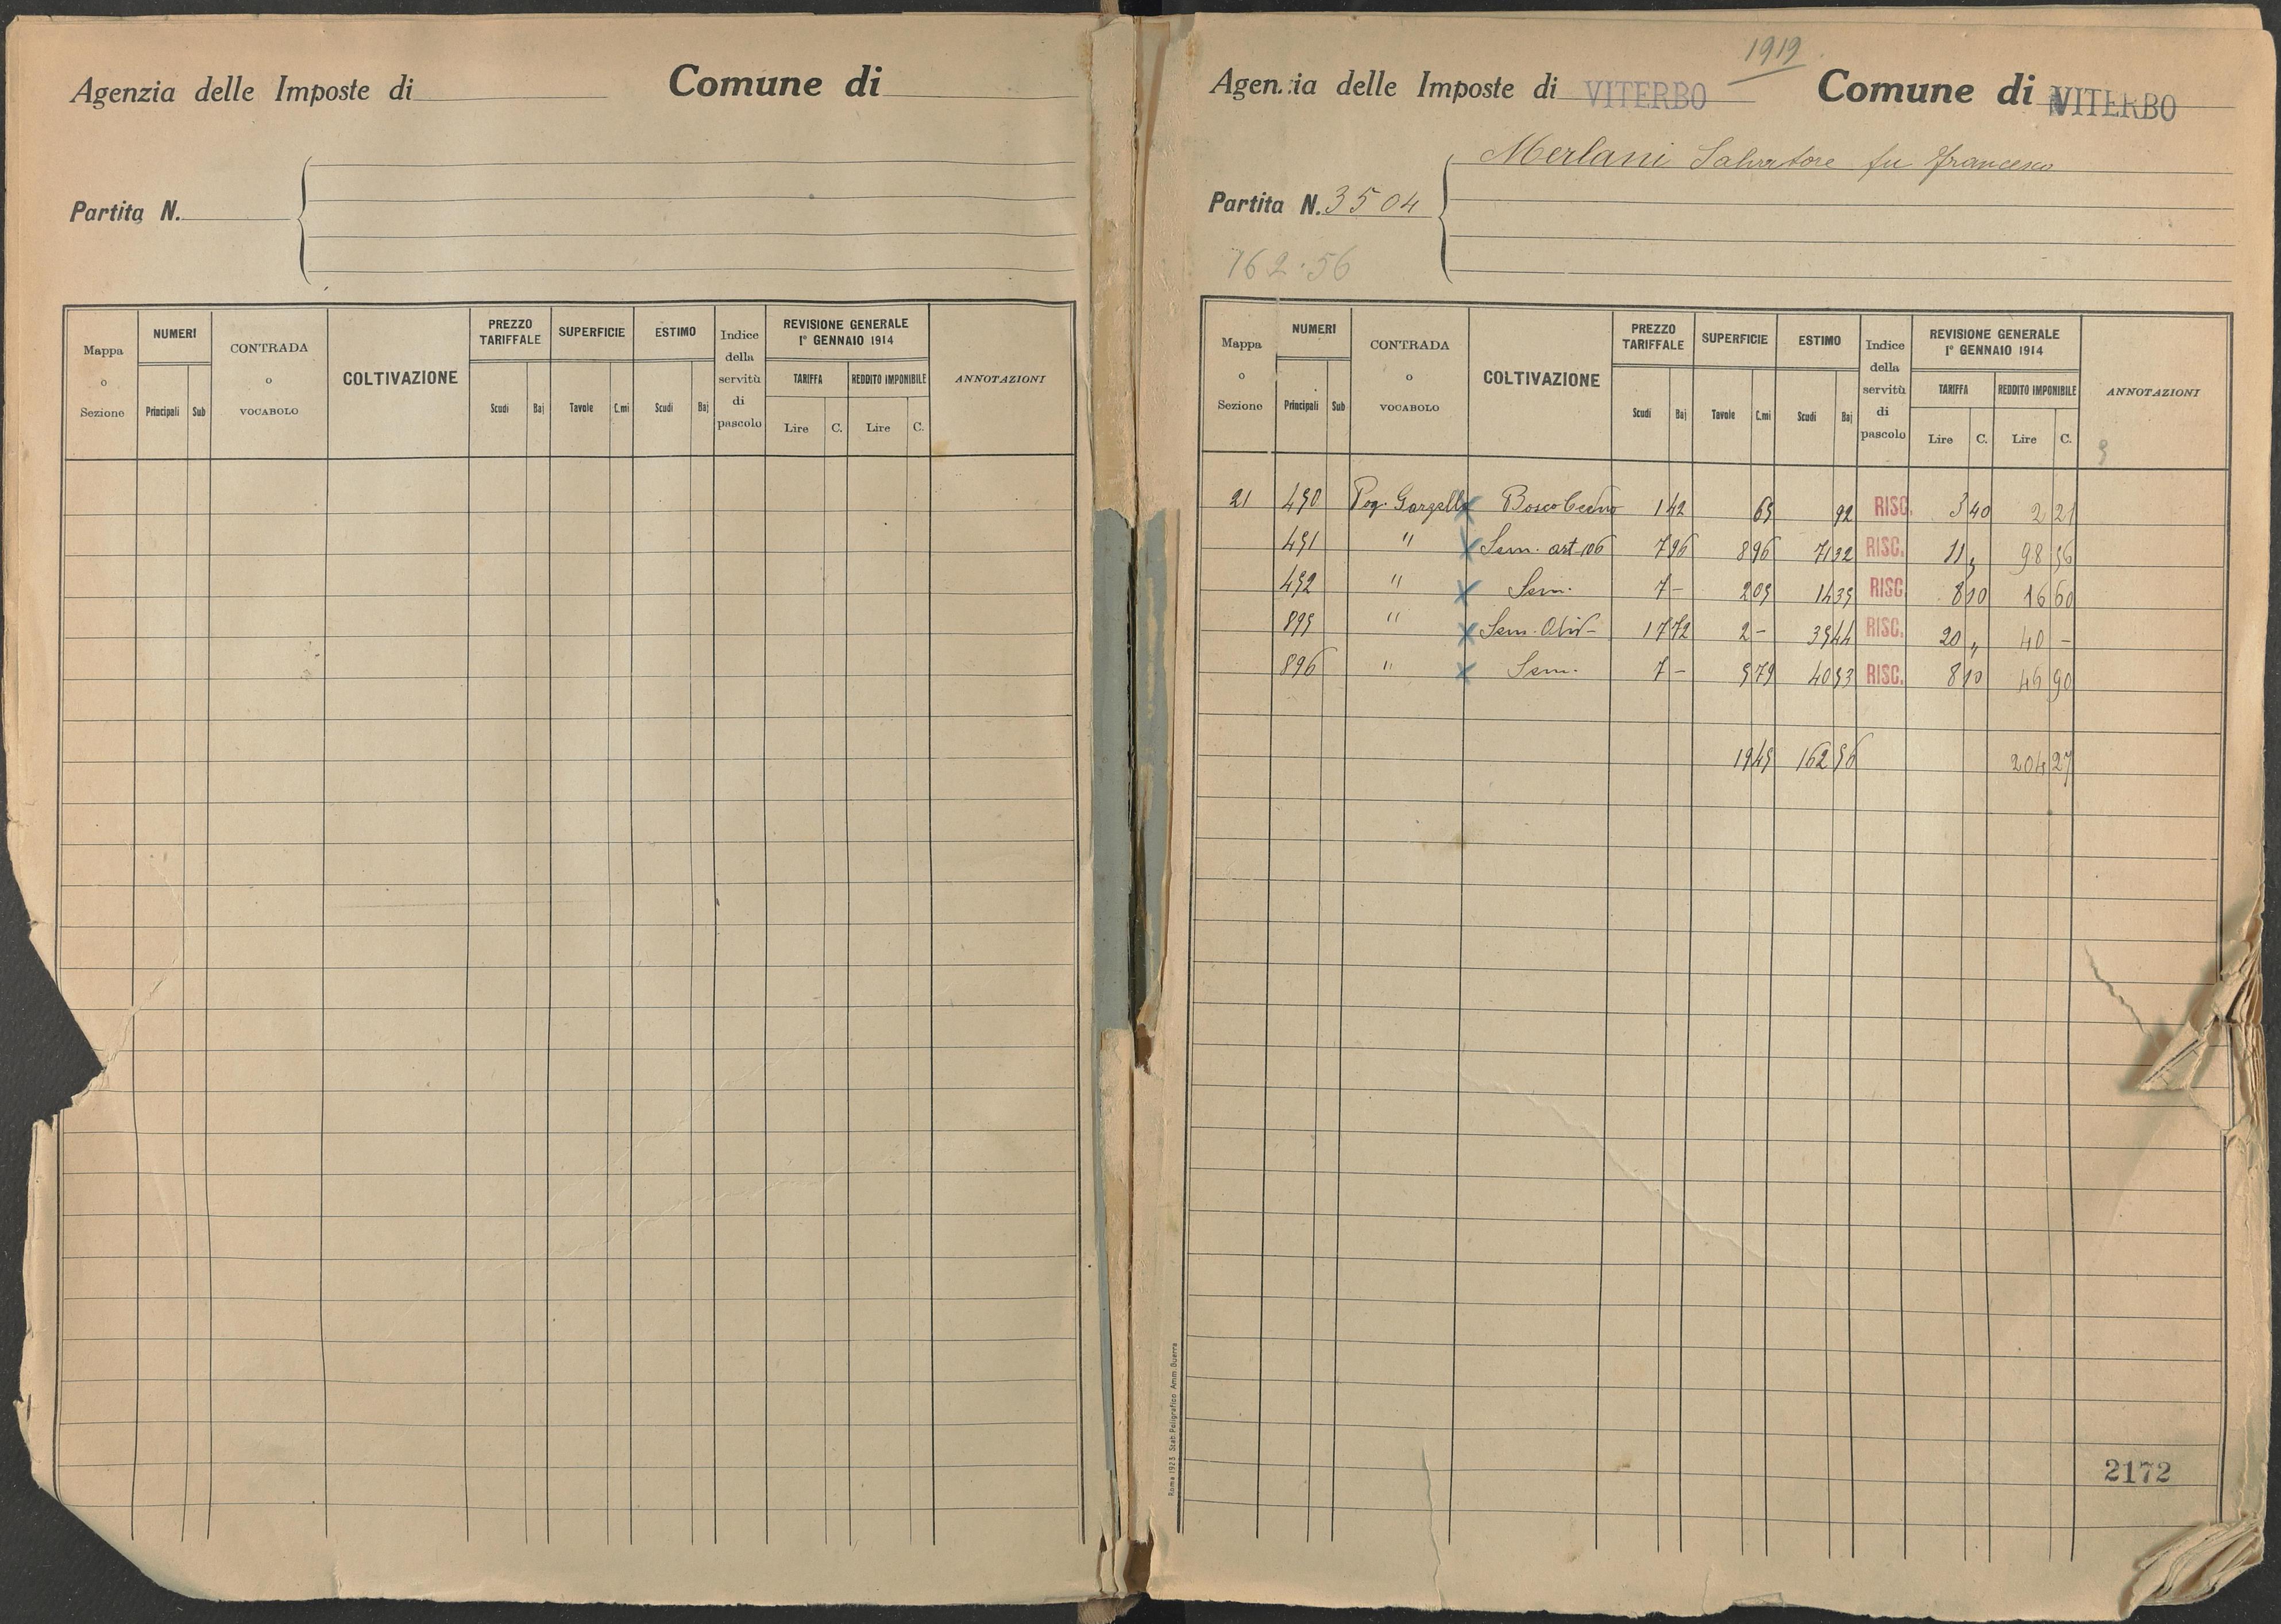 Agenzia delle Imposte di
Comune di
Partita N.
Mappa o Sezione
NUMERI
Principali Sub
CONTRADA o VOCABOLO
COLTIVAZIONE
PREZZO TARIFFALE
Scudi Baj
SUPERFICIE
Tavole C.mi
ESTIMO
Scudi Baj
Indice della servitù di pascolo
REVISIONE GENERALE
1° GENNAIO 1914
TARIFFA REDDITO IMPONIBILE
Lire C. Lire C.
ANNOTAZIONI
1919
Agenzia delle Imposte di VITERBO
Comune di VITERBO
Merlani Salvatore fu Francesco
Partita N. 3504
162.56
Mappa o Sezione
NUMERI
Principali Sub
CONTRADA o VOCABOLO
COLTIVAZIONE
PREZZO TARIFFALE
Scudi Baj
SUPERFICIE
Tavole C.mi
ESTIMO
Scudi Baj
Indice della servitù di pascolo
REVISIONE GENERALE
1° GENNAIO 1914
TARIFFA REDDITO IMPONIBILE
Lire C. Lire C.
ANNOTAZIONI
21 450 Pog. Gargello x Bosco Ceduo 1 42 65 92 RISC. 3 40 2 21
451 " x Sem. art. 106 7 96 8 96 71 32 RISC. 11 " 98 56
452 " x Sem. 7 - 2 05 14 35 RISC. 8 10 16 60
895 " x Sem. Oliv- 17 72 2 - 35 44 RISC. 20 " 40 -
896 " x Sem. 7 - 5 79 40 53 RISC. 8 10 46 90
19 45 162 56 204 27
2172
Roma 1923 Stab. Poligrafico Amm. Guerra